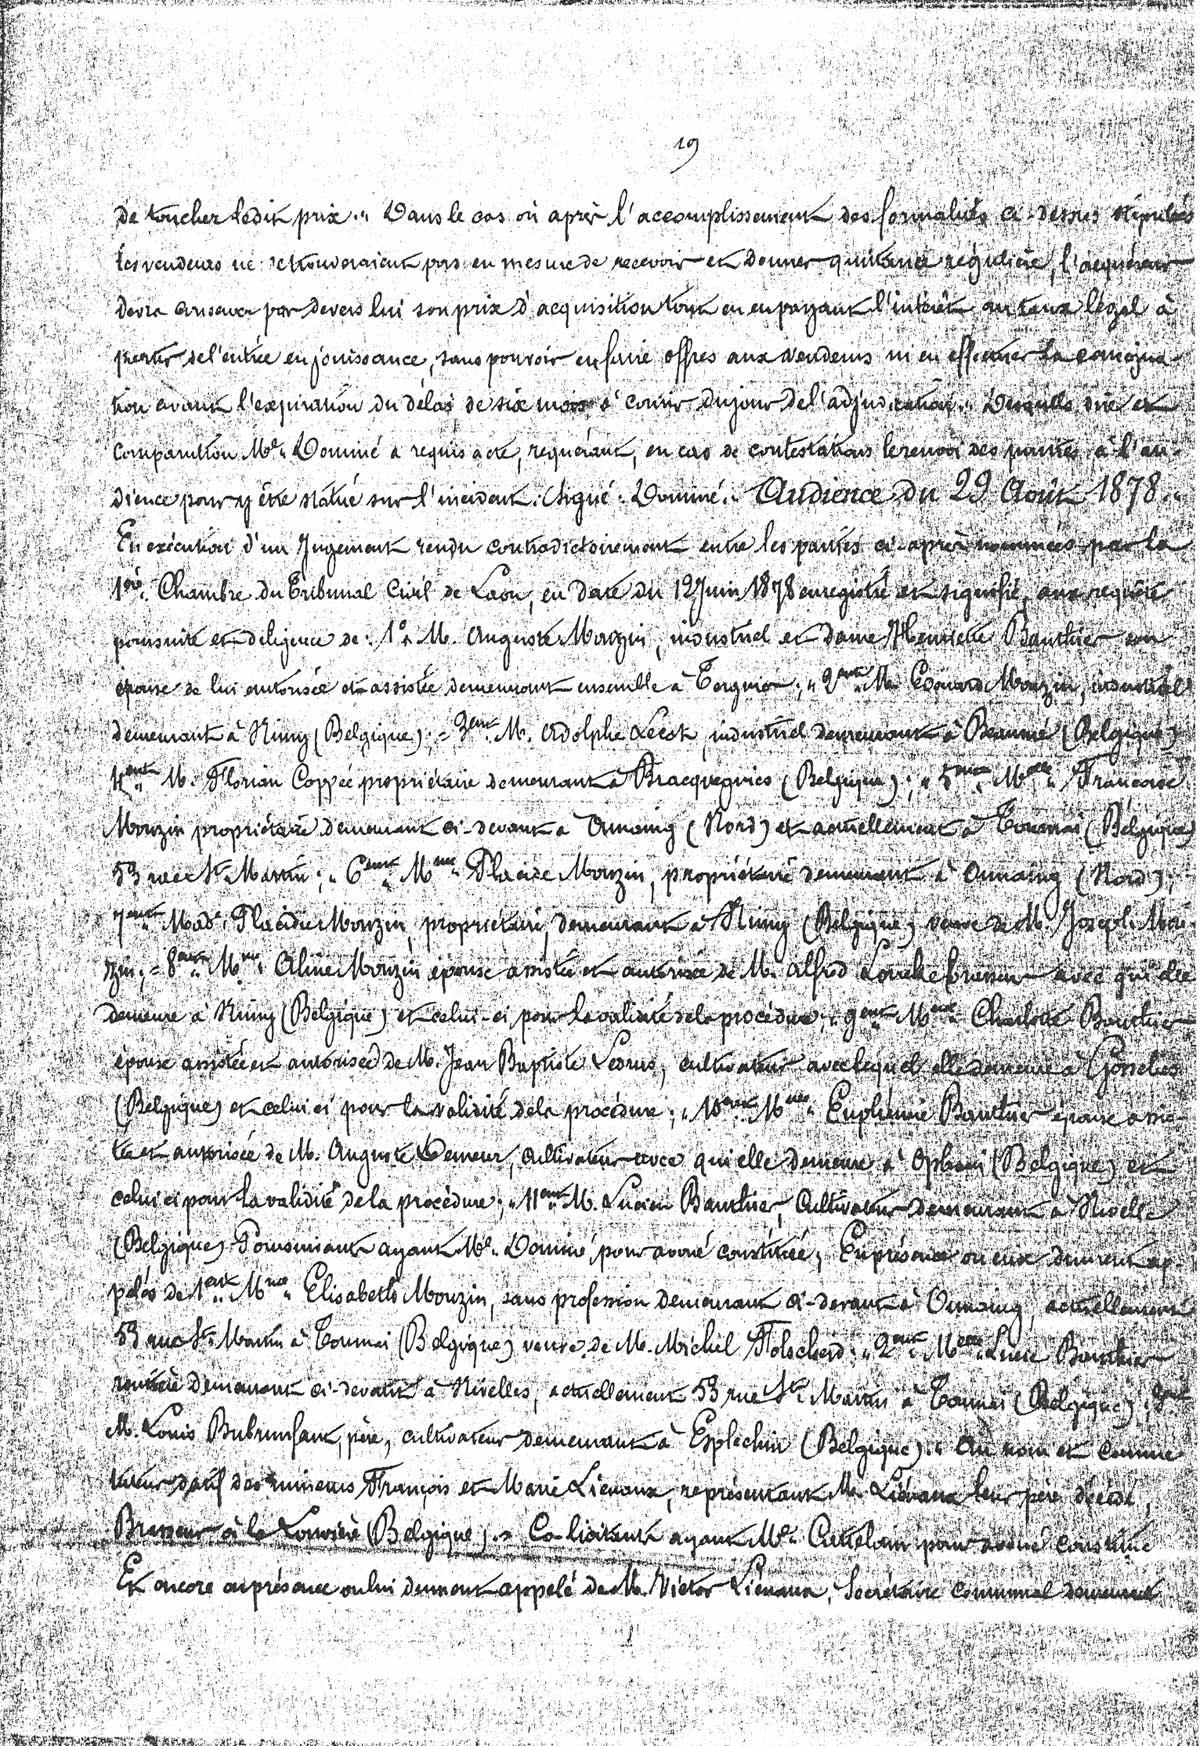 19
de toucher ledit prix. " Dans le cas où après l'accomplissement des formalités ci-dessus stipulées
les vendeurs ne se trouveraient pas en mesure de recevoir et donner quittance régulière, l'acquéreur
devra conserver par devers lui son prix d'acquisition tout en en payant l'intérêt au taux légal à
partir de l'entrée en jouissance, sans pouvoir en faire offres aux vendeurs ni en effectuer la consigna-
tion avant l'expiration du délai de six mois à courir du jour de l'adjudication. " Desquels dire et
comparution Me. Dominé a requis acte, requérant, en cas de contestations le renvoi des parties à l'au-
dience pour y être statué sur l'incident. Signé : Dominé. " Audience du 29 Août 1878. "
En exécution d'un Jugement rendu contradictoirement entre les parties ci-après nommées par la
1ère Chambre du Tribunal Civil de Laon, en date du 12 Juin 1878 enregistré et signifié, aux requête
poursuite et diligence de : 1° M. Auguste Mouzin, industriel et dame Henriette Bauthier son
épouse de lui autorisée et assistée demeurant ensemble à Tergnier ; " 2ent M. Edouard Mouzin, industriel
demeurant à Nimy (Belgique) ; " 3ent M. Adolphe Lecat, industriel demeurant à (Belgique)
4ent M. Florian Coppée propriétaire demeurant à Bracquegnies (Belgique) ; " 5ent Melle Françoise
Mouzin propriétaire demeurant ci-devant à Onnaing (Nord) et actuellement à Tournai (Belgique)
53 rue St. Martin ; " 6ent Mme Placide Mouzin, propriétaire demeurant à Onnaing (Nord) ;
7ent Made Placidie Mouzin, propriétaire, demeurant à Nimy (Belgique) veuve de M. Joseph Mou-
zin ; " 8ent Mme Aline Mouzin épouse assistée et autorisée de M. Alfred brasseur avec qui elle
demeure à Nimy (Belgique) et celui-ci pour la validité de la procédure. " 9ent Mme Charlotte Bauthier
épouse assistée et autorisée de M. Jean Baptiste Ledrus, cultivateur avec lequel elle demeure à Gosselies
(Belgique) et celui ci pour la validité de la procédure ; " 10ent Mme Euphémie Bauthier épouse assis-
tée et autorisée de M. Auguste cultivateur avec qui elle demeure à Ophain (Belgique) et
celui ci pour la validité de la procédure ; " 11ent M. Lucien Bauthier, Cultivateur demeurant à Nivelle
(Belgique) Poursuivants ayant Me. Dominé pour avoué constitué ; En présence ou eux dûment ap-
pelés de 1ent Mme Elisabeth Mouzin, sans profession demeurant ci-devant à Onnaing, actuellement
53 rue St. Martin à Tournai (Belgique) veuve de M. Michel Folscheid. " 2ent Melle Lucie Bauthier
rentière demeurant ci-devant à Nivelles, actuellement 53 rue St. Martin à Tournai (Belgique) ; 3ent
M. Louis Dubrunfaut, père, cultivateur demeurant à Esplechin (Belgique). " Au nom et comme
tuteur datif des mineurs François et Marie Liénaux, représentant M. Liénaux leur père décédé,
Brasseur à la Louvière (Belgique). " Co-licitants ayant Me. pour avoué constitué
Et encore en présence ou lui dûment appelé de M. Victor Liénaux, Secrétaire communal demeurant